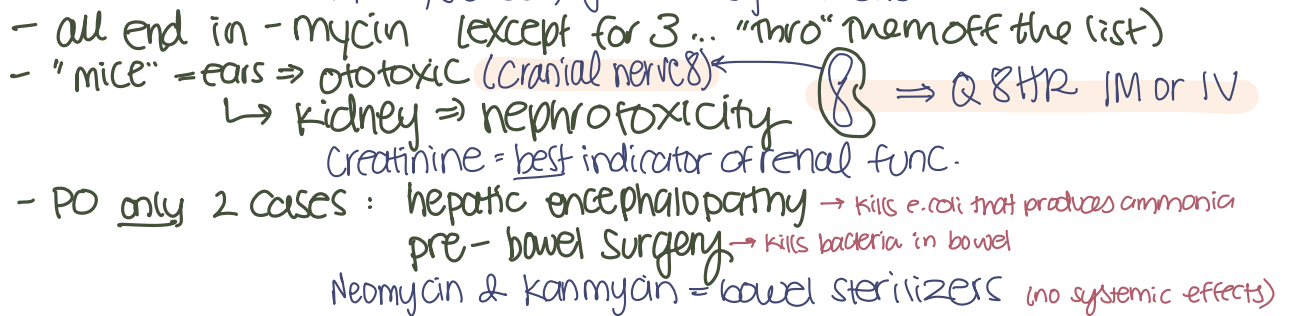 - all end in - mycin (except for 3... "thro" them off the list)
- "mice" = ears ⇒ ototoxic (cranial nerve 8) ← 8 ⇒ Q 8HR IM or IV
↳ kidney ⇒ nephrotoxicity
Creatinine = best indicator of renal func.
- PO only 2 cases : hepatic encephalopathy → kills e.coli that produces ammonia
pre - bowel surgery → kills bacteria in bowel
Neomycin & Kanmycin = bowel sterilizers (no systemic effects)